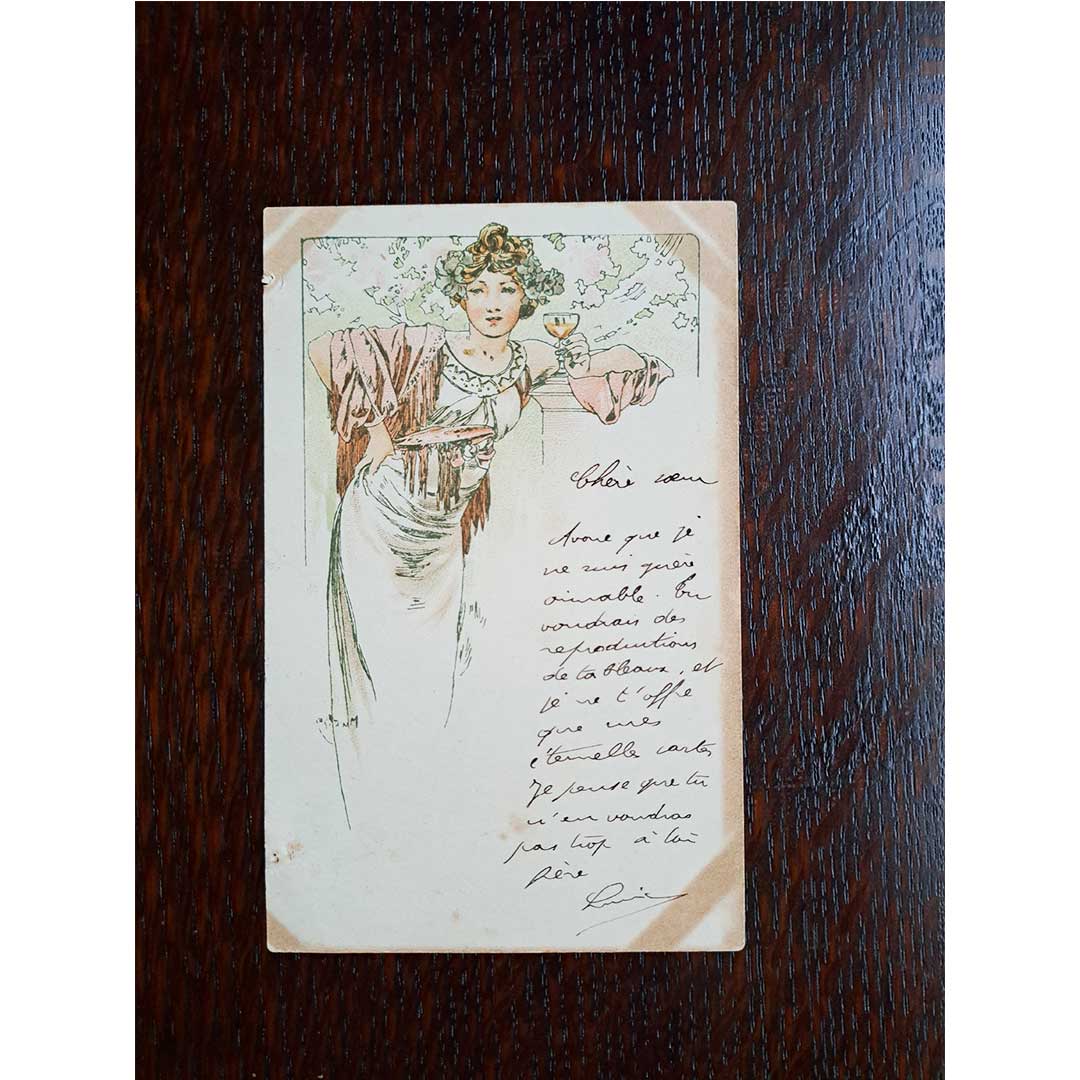 Chère sœur
Avoue que je
ne suis guère
aimable. Tu
voudrais des
reproductions
de tableaux, et
je ne t'offre
que mes
éternelles cartes
Je pense que tu
n'en voudras
pas trop à ton
frère